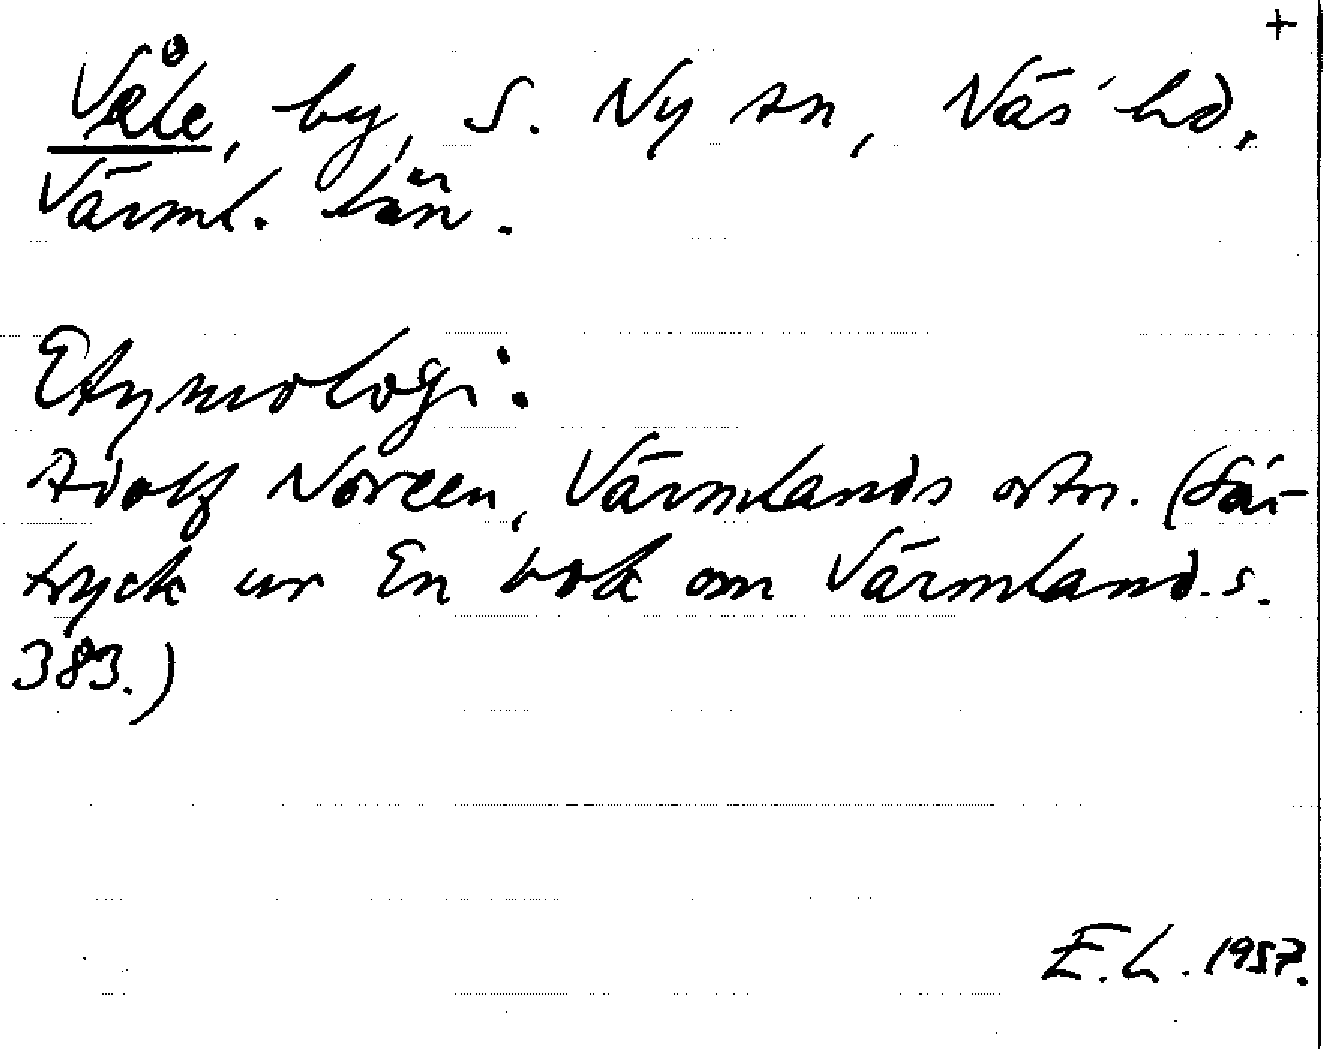 +
Våle, by, S. Ny sn, Näs hd,
Värml. län.
Etymologi:
Adolf Noreen, Värmlands ortn. (Sär-
tryck ur En bok om Värmland. s.
383.)
E.L. 1957.